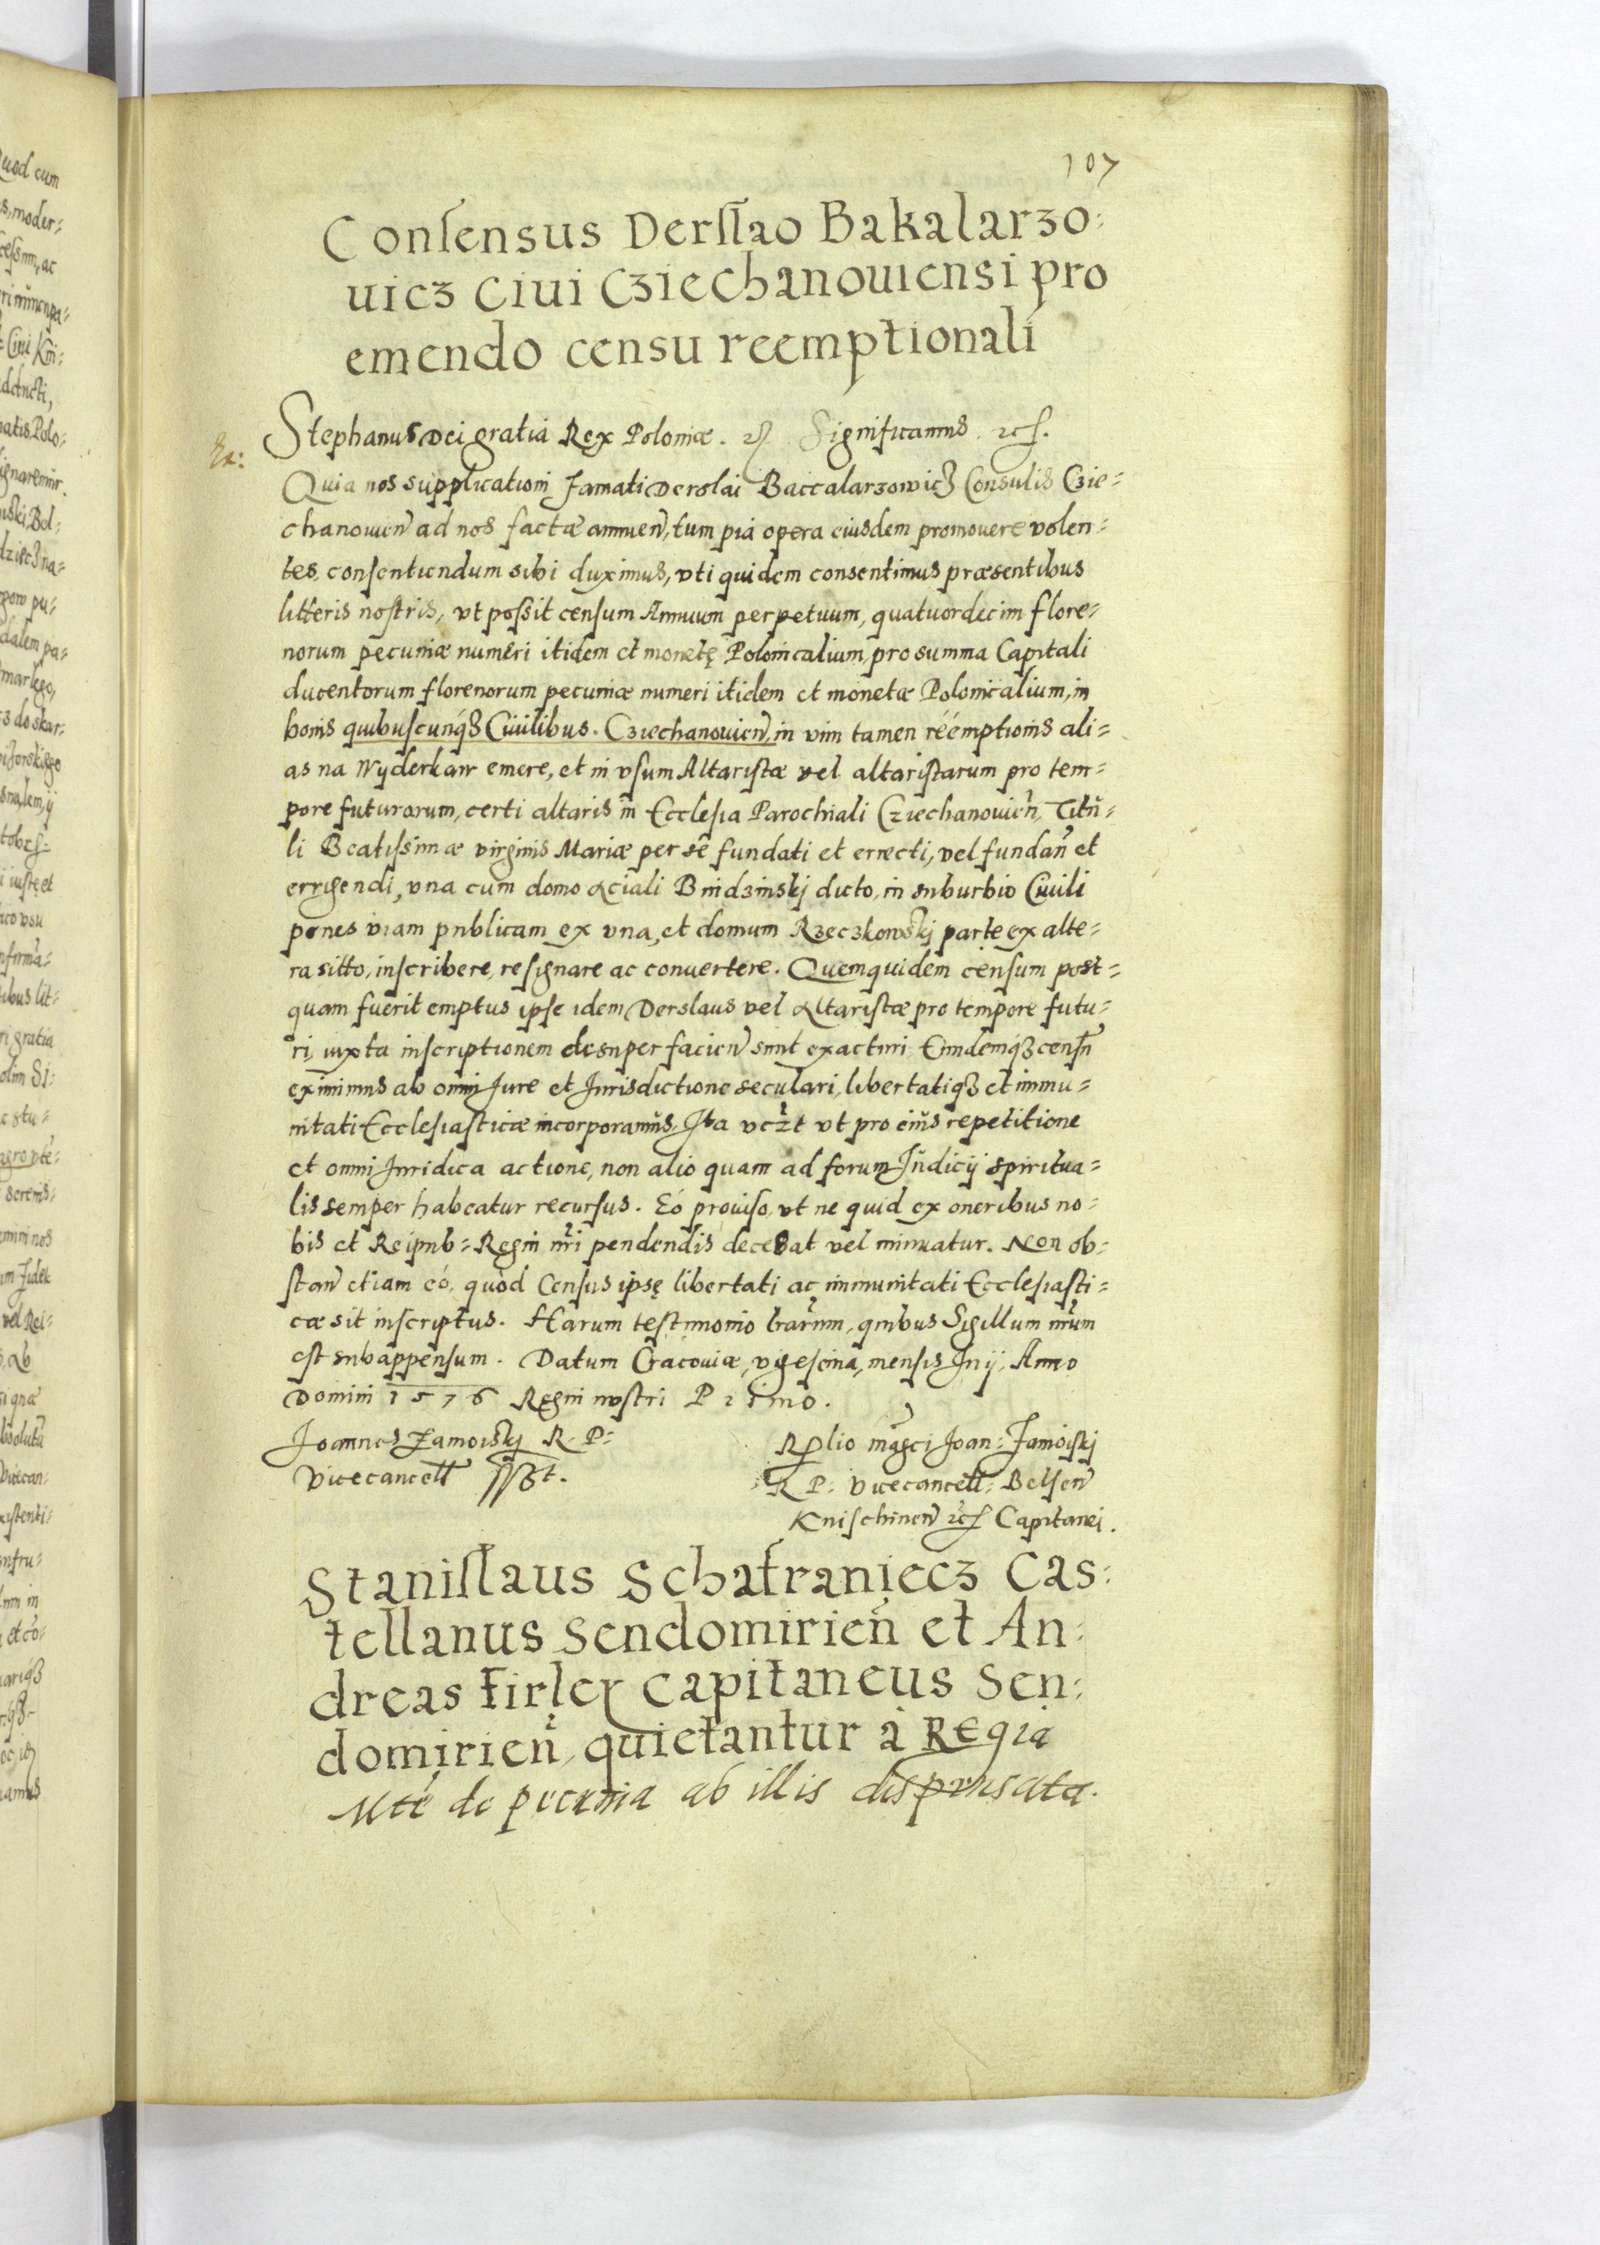 107
Consensus Derslao Bakalarzo:
uicz Ciui Cziechanouiensi pro
emendo censu reemptionali
Stephanus Dei gratia Rex Poloniæ. Significamus.
Quia nos supplicationi famati Derslai Baccalarzowicz Consulis Czie=
chanouien̄ ad nos factæ annuen̄, tum pia opera eiusdem promouere volen=
tes, consentiendum sibi duximus, vti quidem consentimus præsentibus
litteris nostris, vt possit censum Annuum perpetuum, quatuordecim flore=
norum pecuniæ numeri itidem et monetę Polonicalium, pro summa Capitali
ducentorum florenorum pecuniæ numeri itidem et monetæ Polonicalium, in
bonis quibuscunq3 Ciuilibus. Cziechanouien̄, in vim tamen reémptionis ali=
as na Wyderkaw emere, et in vsum Altaristæ vel altaristarum pro tem=
pore futurorum, certi altaris in Ecclesia Parochiali Cziechanouien̄, Titu=
li Beatissimæ virginis Mariæ per se fundati et errecti, vel fundan̄ et
errigendi, vna cum domo Aciali Bnidzinskj dicto, in suburbio Ciuili
penes viam publicam ex vna, et domum Rzeczkowskj parte ex alte=
ra sitto, inscribere, resignare ac conuertere. Quemquidem censum post=
quam fuerit emptus ipse idem Derslaus vel Altaristæ pro tempore futu=
ri, iuxta inscriptionem desuper facien̄ sint exacturi. Eundemq3 censū
eximimus ab omni Jure et Jurisdictione seculari, libertatiq3 et immu=
nitati Ecclesiasticæ incorporamus, Ita vczt vt pro eius repetitione
et omni Juridica actione, non alio quam ad forum Judicij spiritua=
lis semper habeatur recursus. Eó prouiso, vt ne quid ex oneribus no=
bis et Reipub= Regni nr̄i pendendis decedat vel minuatur. Non ob=
stan̄ etiam eó, quod Census ipsę libertati ac immunitati Ecclesiasti=
cæ sit inscriptus. Harum testimonio lrarum, quibus Sigillum nr̄um
est subappensum. Datum Cracouiæ, vigesima, mensis Junij, Anno
Domini 1576 Regni nostri Primo.
Joannes Zamoiskj R. P:
Vicecancell sszt.
Rlio magci Joan: Zamoiskj
R P: Vicecancell: Belsen̄
Knischinen̄ Capitanei.
Stanislaus Schafraniecz Cas:
tellanus Sendomirien̄ et An:
dreas Firley Capitaneus Sen:
domirien̄, quietantur à Regia
Mté de pecunia ab illis dispensata.